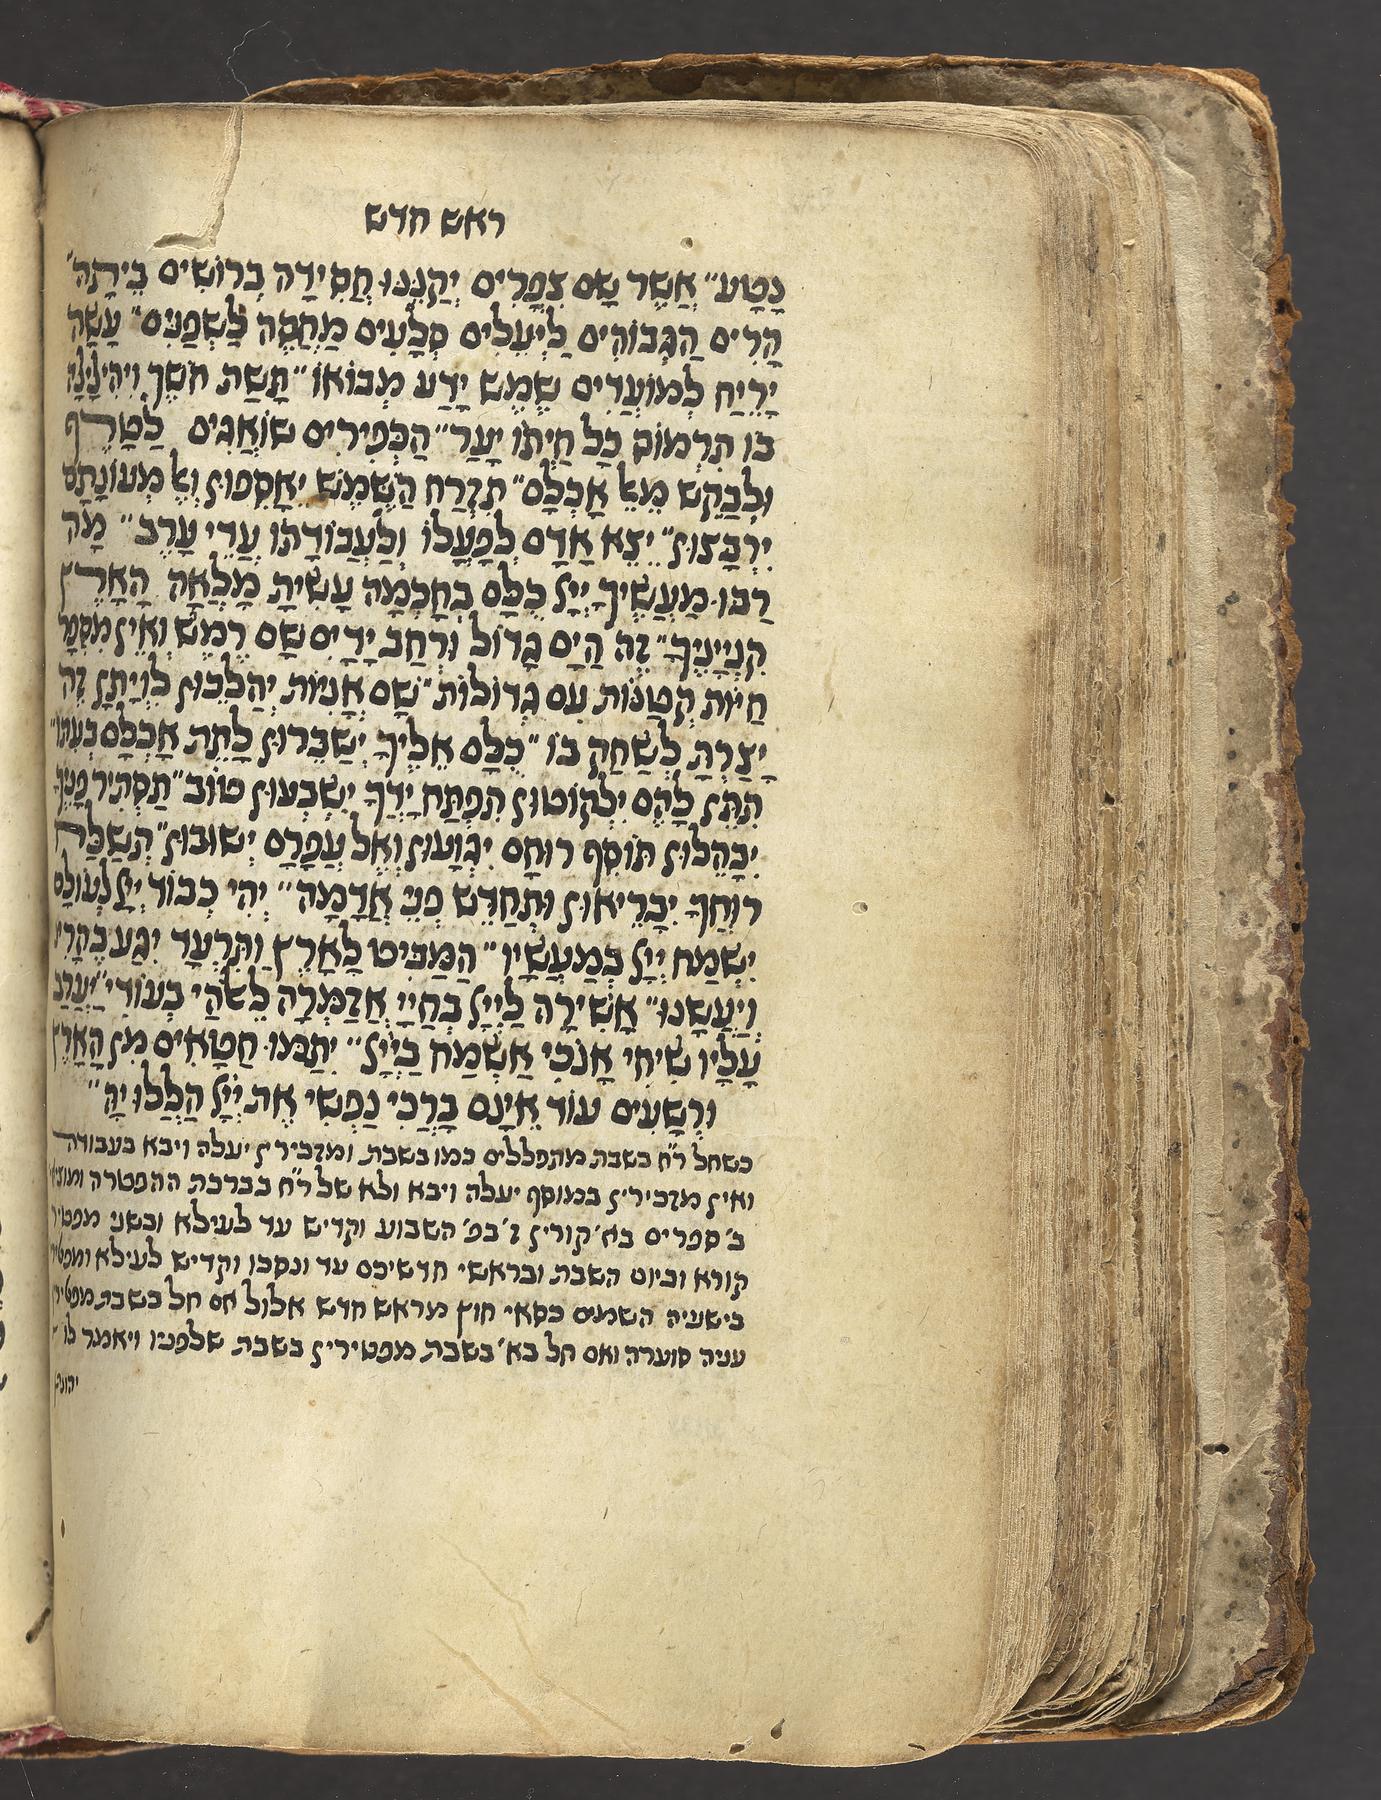 ראש חדש
נָטָע״ אֲשֶׁר שָׁם צִפֳּרִים יְקַנֵּנוּ חֲסִידָה בְּרוֹשִׁים בֵּיתָהּ״
הָרִים הַגְּבוֹהִים לַיְּעֵלִים סְלָעִים מַחְסֶה לַשְׁפַנִּים״ עָשָׂה
יָרֵיחַ לְמוֹעֲדִים שֶׁמֶשׁ יָדַע מְבוֹאוֹ״ תָּשֶׁת חֹשֶׁךְ וִיהִי לָיְלָה
בּוֹ תִרְמוֹס כָּל חַיְתוֹ יָעַר״ הַכְּפִירִים שׁוֹאֲגִים לַטָּרֶף
וּלְבַקֵּשׁ מֵאֵל אָכְלָם״ תִּזְרַח הַשֶּׁמֶשׁ יֵאָסֵפוּן וְאֶל מְעוֹנָתָם
יִרְבָּצוּן״ יֵצֵא אָדָם לְפָעֳלוֹ וְלַעֲבוֹדָתוֹ עֲדֵי עָרֶב״ מָה
רַבּוּ מַעֲשֶׂיךָ יְיָ כֻּלָּם בְּחָכְמָה עָשִׂיתָ מָלְאָה הָאָרֶץ
קִנְיָינֶיךָ״ זֶה הַיָּם גָּדוֹל וּרְחַב יָדַיִם שָׁם רֶמֶשׂ וְאֵין מִסְפָּר
חַיּוֹת קְטַנּוֹת עִם גְּדוֹלוֹת״ שָׁם אֳנִיּוֹת יְהַלֵּכוּן לִוְיָתָן זֶה
יָצַרְתָּ לְשַׂחֶק בּוֹ״ כֻּלָּם אֵלֶיךָ יְשַׂבֵּרוּן לָתֵת אָכְלָם בְּעִתּוֹ״
תִּתֵּן לָהֶם יִלְקוֹטוּן תִּפְתַּח יָדְךָ יִשְׂבְּעוּן טוֹב״ תַּסְתִּיר פָּנֶיךָ
יִבָּהֵלוּן תּוֹסֵף רוּחָם יִגְוָעוּן וְאֶל עֲפָרָם יְשׁוּבוּן״ תְּשַׁלַּח
רוּחֲךָ יִבָּרֵיאוּן וּתְחַדֵּשׁ פְּנֵי אֲדָמָה״ יְהִי כְבוֹד יְיָ לְעוֹלָם
יִשְׂמַח יְיָ בְּמַעֲשָׂיו״ הַמַּבִּיט לָאָרֶץ וַתִּרְעָד יִגַּע בֶּהָרִים
וְיֶעֱשָׁנוּ״ אָשִׁירָה לַיְיָ בְּחַיָּי אֲזַמְּרָה לֵאלֹהַי בְּעוֹדִי״ יֶעֱרַב
עָלָיו שִׂיחִי אָנֹכִי אֶשְׂמַח בַּיְיָ״ יִתַּמּוּ חַטָּאִים מִן הָאָרֶץ
וּרְשָׁעִים עוֹד אֵינָם בָּרֲכִי נַפְשִׁי אֶת יְיָ הַלְלוּ יָהּ״
כשחל ר״ח בשבת מתפללים כמו בשבת ומזכירין יעלה ויבא בעבודה
ואין מזכירין במוסף יעלה ויבא ולא של ר״ח בברכת ההפטרה ומוציאי
ב׳ ספרים בא׳ קורין ז׳ בפ׳ השבוע וקדיש עד לעילא ובשני מפטיר
קורא וביום השבת ובראשי חדשיכם עד ונסכו וקדיש לעילא ומפטיר
בישעיה השמים כסאי חוץ מראש חדש אלול אם חל בשבת מפטירין
עניה סוערה ואם חל בא׳ בשבת מפטירין בשבת שלפניו ויאמר לו
יהונתן